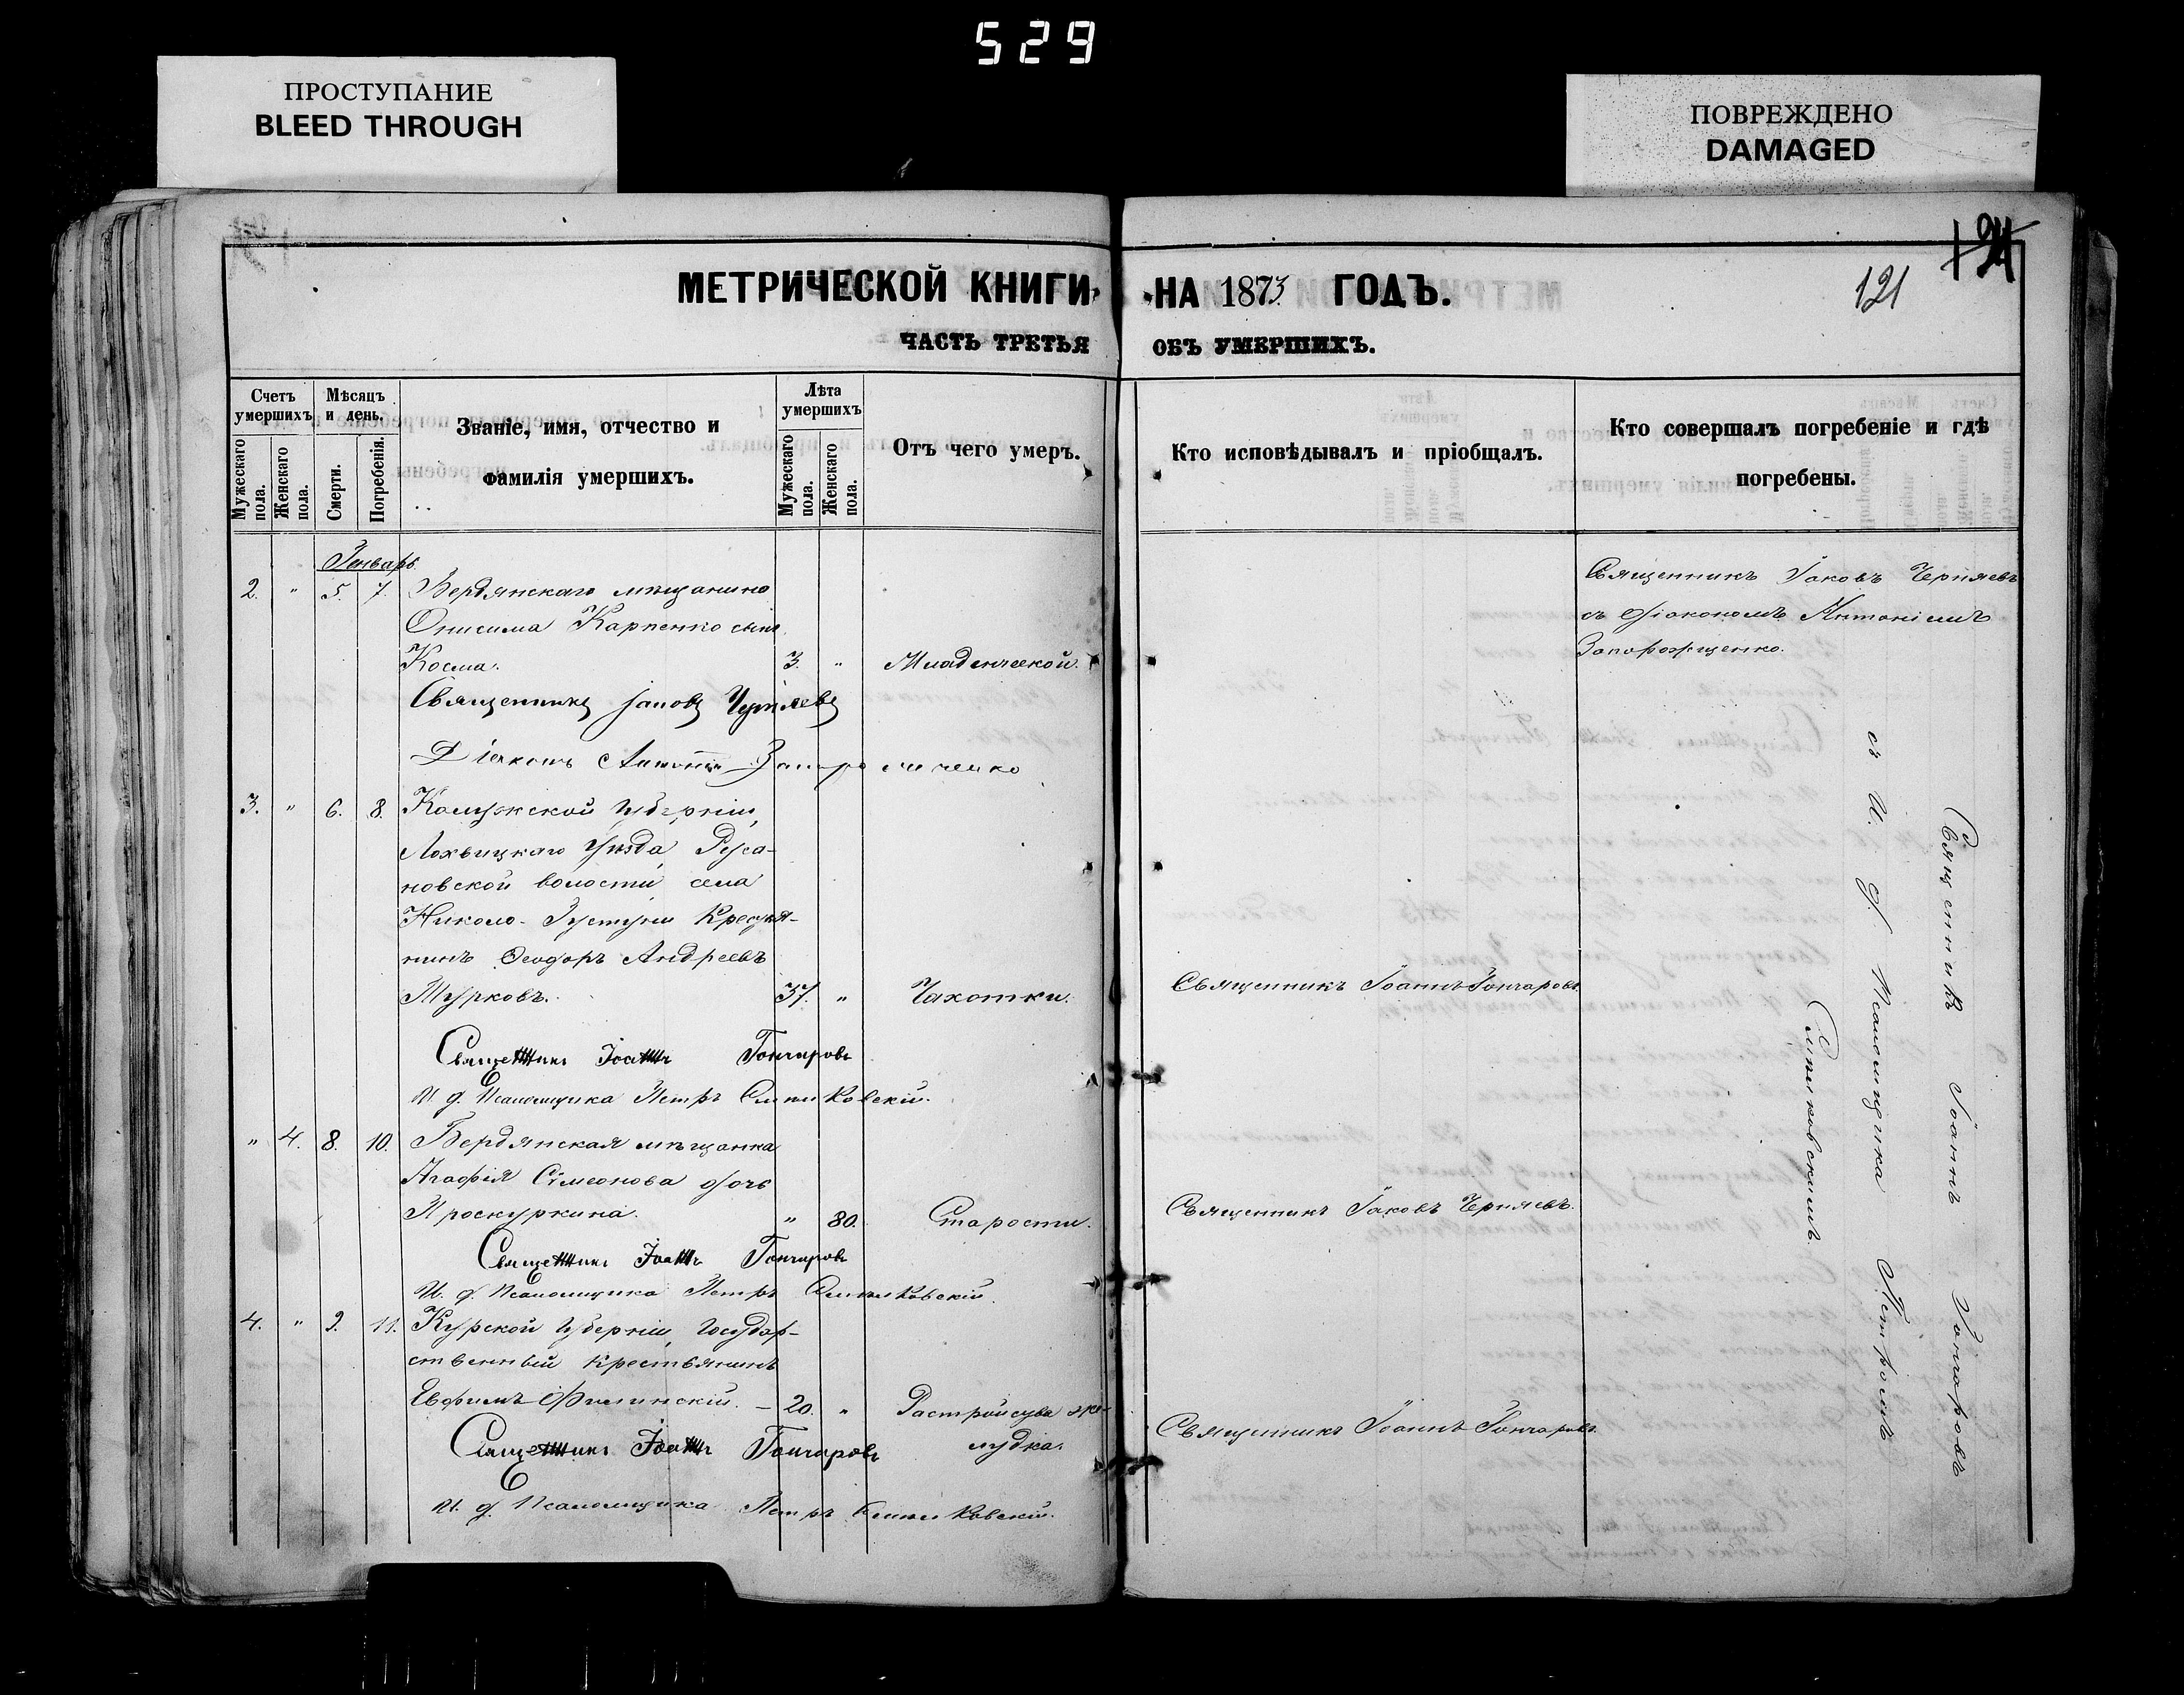 529
ПРОСТУПАНИЕ
BLEED THROUGH
ПОВРЕЖДЕНО
DAMAGED
МЕТРИЧЕСКОЙ КНИГИ НА 1873 ГОДЪ.
121
ЧАСТЬ ТРЕТЬЯ ОБЪ УМЕРШИХЪ.
Счетъ умершихъ
Мужескаго пола.
Женскаго пола.
Мѣсяцъ и день.
Смерти.
Погребенія.
Званіе, имя, отчество и
фамилія умершихъ.
Лѣта умершихъ
Мужескаго пола.
Женскаго пола.
Отъ чего умеръ.
Кто исповѣдывалъ и пріобщалъ.
Кто совершалъ погребеніе и гдѣ
погребены.
Январь
2. " 5. 7. Бердянскаго мѣщанина
Онисима Карпенко сынъ
Косма. 3. " Младенческой.
Священникъ Іаковъ Черняевъ
съ Діакономъ Антоніемъ
Запорожченко.
Священникъ Іаковъ Черняевъ
Діаконъ Антоній
3. " 6. 8. Калужской Губерніи,
Лохвицкаго Уѣзда, Руса-
новской волости, села
Николо-
нинъ Ѳеодоръ Андреевъ
Мурковъ. 37. " Чахотки. Священникъ Іоаннъ Гончаровъ
Священникъ Іоаннъ Гончаровъ
И. д. Псаломщика Петръ
" 4. 8. 10. Бердянская мѣщанка
Агафія Симеонова дочь
Проскуркина. " 80. Старости. Священникъ Іаковъ Черняевъ.
Священникъ Іоаннъ Гончаровъ
И. д. Псаломщика Петръ
4. " 9. 11. Курской Губерніи, Государ-
ственный крестьянинъ
Евфимъ Филинскій. — 20. " Разстройства же-
лудка. Священникъ Іоаннъ Гончаровъ.
Священникъ Іоаннъ Гончаровъ
И. д. Псаломщика Петръ
Священникъ Іоаннъ Гончаровъ
съ И. д. Псаломщика Петромъ